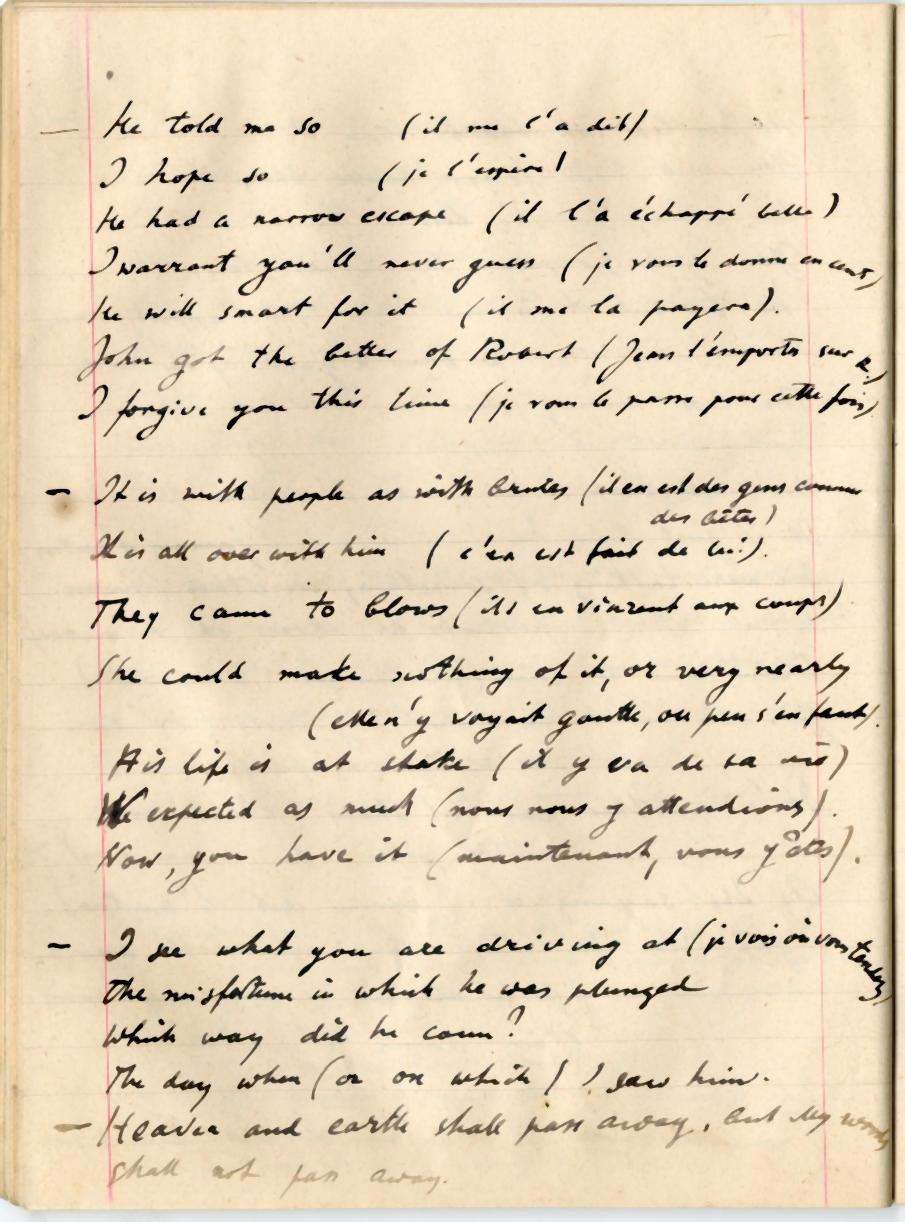 — He told me so (il me l'a dit)
I hope so (je l'espère)
He had a narrow escape (il l'a échappé belle)
I warrant you'll never guess (je vous le donne en cent)
He will smart for it (il me la payera).
John got the better of Robert (Jean l'emporte sur R.)
I forgive you this time (je vous le passe pour cette fois)
- It is with people as with brutes (il en est des gens comme
des bêtes)
It is all over with him (c'en est fait de lui).
They came to blows (ils en vinrent aux coups)
She could make nothing of it, or very nearly
(elle n'y voyait goutte, ou peu s'en faut).
His life is at stake (il y va de sa vie)
We expected as much (nous nous y attendions).
Now, you have it (maintenant, vous y êtes).
- I see what you are driving at (je vois où vous tendez)
The misfortune in which he was plunged
Which way did he come?
The day when (or on which) I saw him.
- Heaven and earth shall pass away, but My words
shall not pass away.